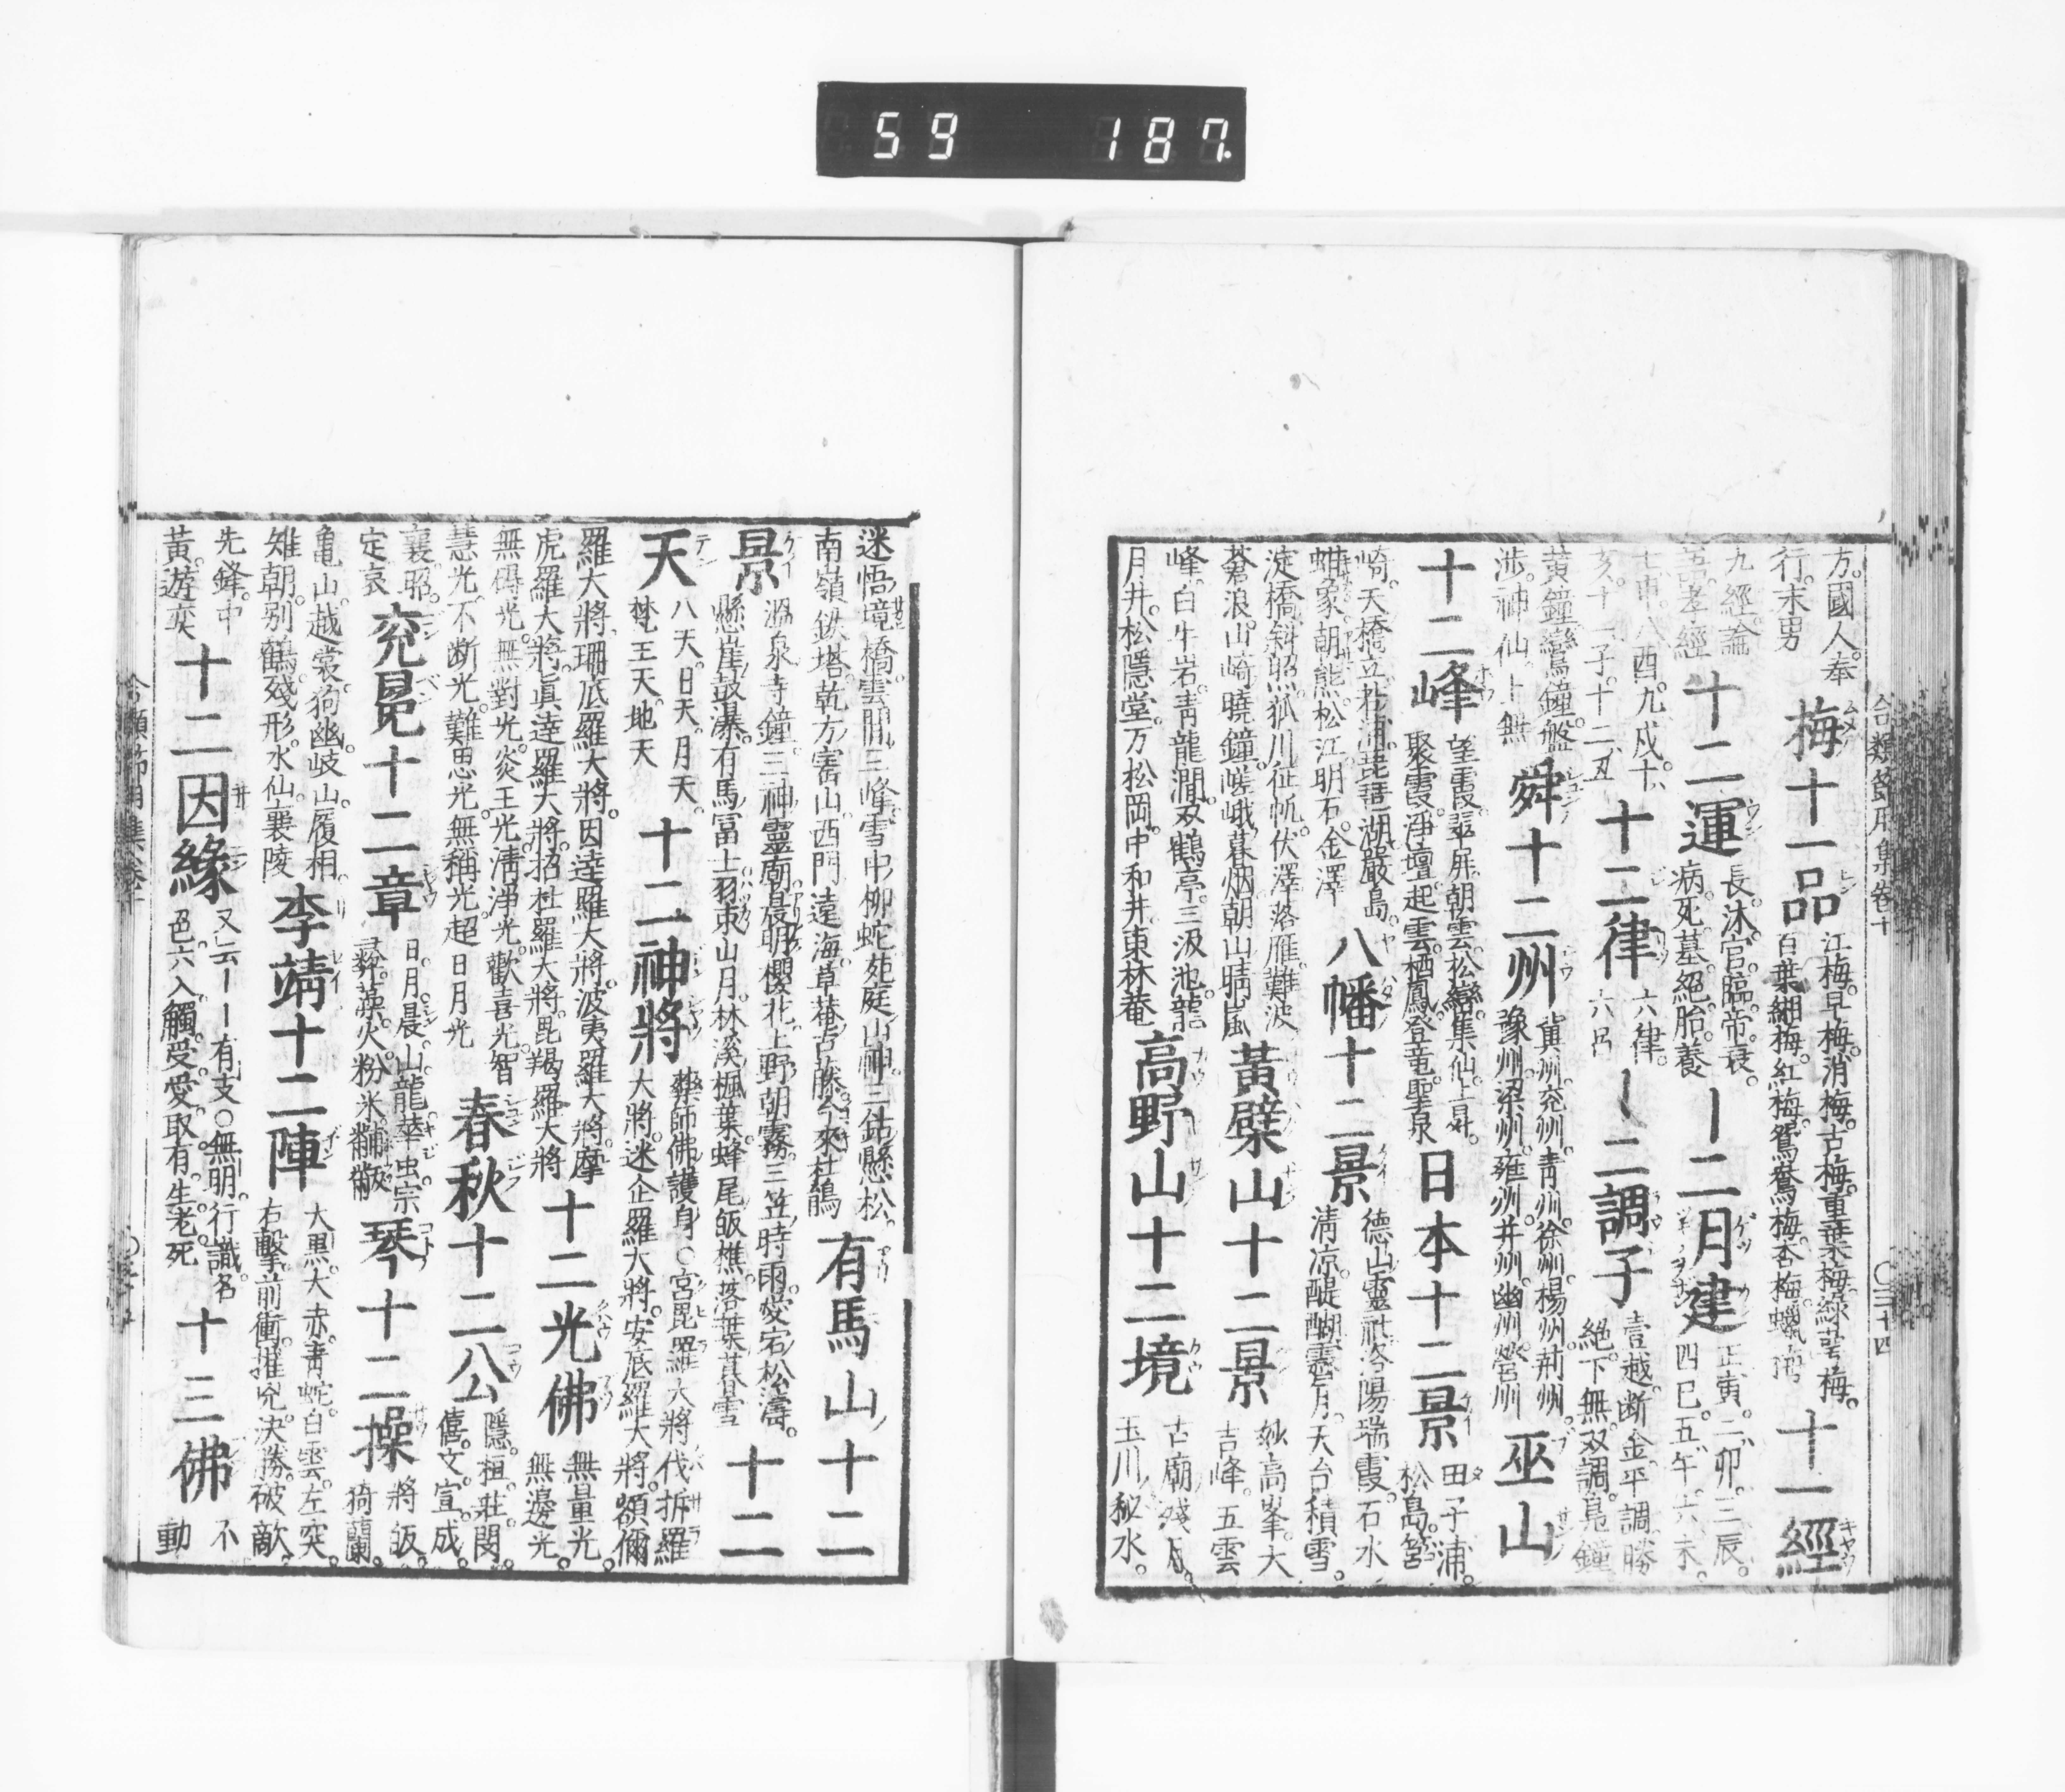 59 187
合類節用集卷十 〇三十四
方。國人。奉
行。末男
梅十一品
江梅。早梅。消梅。古梅。重葉梅。綠萼梅。
百葉緗梅。紅梅。鴛鴦梅。杏梅。蠟梅
十一經
九經。論
語。孝經
十二運
長。沐。官。臨。帝。衰。
病。死。墓。絕。胎。養
一二月建
正寅。二卯。三辰。
四巳。五午。六未。
七申。八酉。九戌。十
亥。十一子。十二丑
十二律
六律。
六呂
一二調子
壹越。断金。平調。勝
絕。下無。双調。鳧鐘
黃鐘。鸞鐘。盤
涉。神仙。上無
舜十二州
冀州。兗州。青州。徐州。楊州。荊州。
豫州。梁州。雍州。井州。幽州。營州
巫山
十二峰
望霞。翠屏。朝雲。松巒。集仙。上昇。
聚霞。淨壇。起雲。栖鳳。登竜。聖泉
日本十二景
田子浦。
松島。筥
崎。天橋立。和浦。琵琶湖。嚴島。
蚶象。朝熊。松江。明石。金澤
八幡十二景
德山靈社。洛陽瑞霞。石水
清凉。醍醐霽月。天台積雪。
淀橋斜照。狐川征帆。伏澤落雁。難波
蒼浪。山崎曉鐘。嵯峨暮烟。朝山晴嵐
黃檗山十二景
妙高峯。大
吉峰。五雲
峰。白牛岩。青龍澗。双鶴亭。三汲池。龍
月井。松隱堂。万松岡。中和井。東林菴
高野山十二境
古廟殘月。
玉川秘水。
迷悟境橋。雲間三峰。雪中柳。蛇苑庭。山神三鈷懸松。
南嶺鉄塔。乾方寚山。西門遠海。草菴古藤。今來杜鵑
有馬山十二
景
溫泉寺鐘。三神靈廟。有明櫻花。上野朝霧。三笠時雨。愛宕松濤。
懸崖鼓瀑。有馬冨士。羽束山月。林溪楓葉。蜂尾皈樵。落葉暮雪
十二
天
八天。日天。月天。
梵王天。地天
十二神將
藥師佛護身〇宮毘羅大將。伐折羅
大將。迷企羅大將。安底羅大將。頞儞
羅大將。珊底羅大將。因達羅大將。波夷羅大將。摩
虎羅大將。眞達羅大將。招杜羅大將。毘羯羅大將
十二光佛
無量光。
無邊光。
無碍光。無對光。炎王光。清淨光。歡喜光。智
慧光。不断光。難思光。無稱光。超日月光
春秋十二公
隱。桓。莊。閔。
僖。文。宣。成。
襄。昭。
定哀
兗冕十二章
日。月。晨。山。龍。華虫。宗
彛。藻。火。粉米。黼。黻
琴十二操
將皈
猗蘭。
龜山。越裳。拘幽。岐山。履相。
雉朝。別鶴。殘形。水仙。襄陵
李靖十二陣
大黑。大赤。青蛇。白雲。左突。
右擊。前衝。摧兇。決勝。破敵。
先鋒。中
黃。遊奕
十二因緣
又云一一有支〇無明。行識。名
色。六入觸。受。愛。取。有。生。老。死
十三佛
不
動